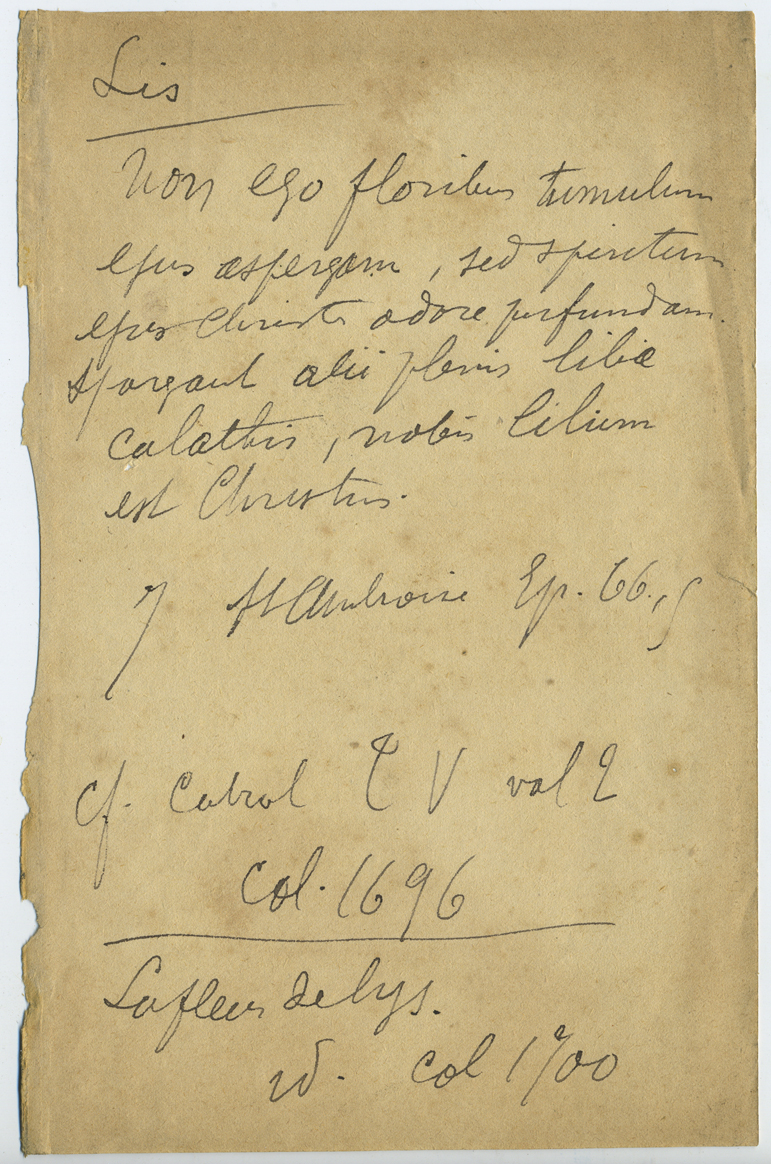 Lis
Non ego floribus tumulum
ejus aspergam, sed spiritum
ejus Christi odore perfundam.
Spargant alii plenis lilia
calathis, nobis lilium
est Christus.
St Ambroise Ep. 66.,
cf. Cabrol T V vol 2
Col. 1696
La fleur de lys.
id. col 1700